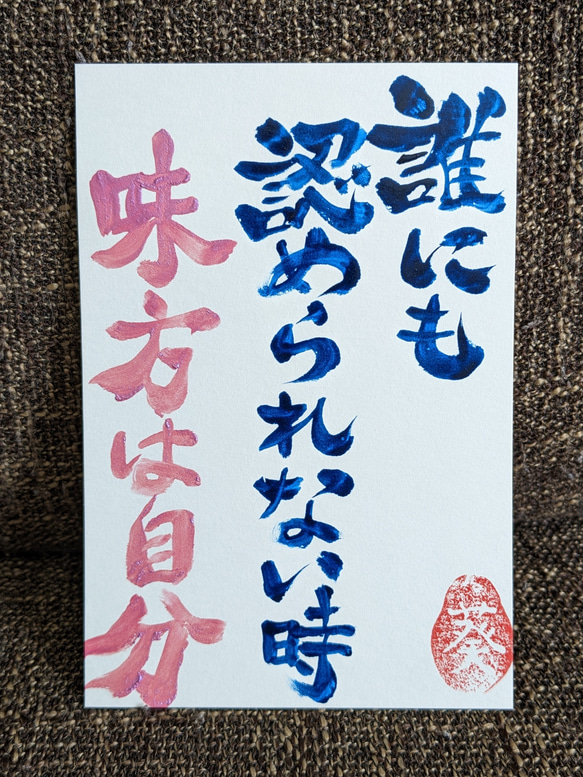 誰にも
認められない時
味方は自分
葵